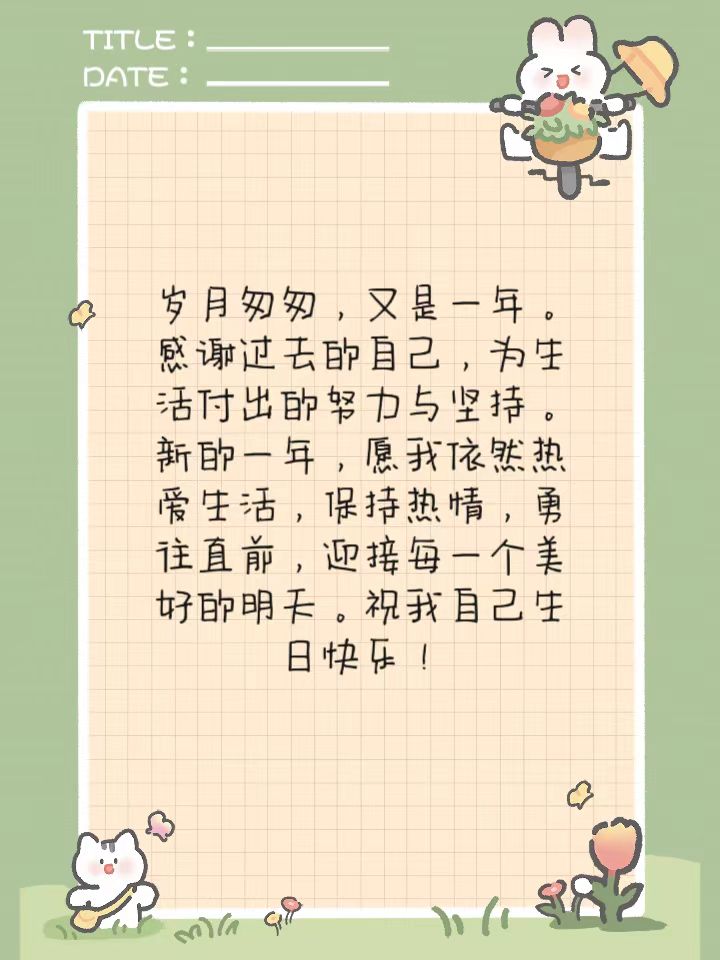 TITLE：
DATE：
岁月匆匆，又是一年。
感谢过去的自己，为生
活付出的努力与坚持。
新的一年，愿我依然热
爱生活，保持热情，勇
往直前，迎接每一个美
好的明天。祝我自己生
日快乐！